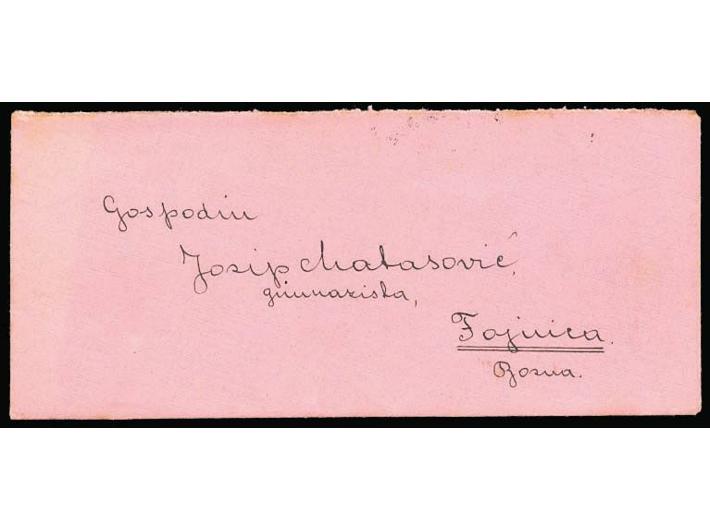 Gospodin
Josip Matasović,
gimnazista,
Fojnica.
Bosna.